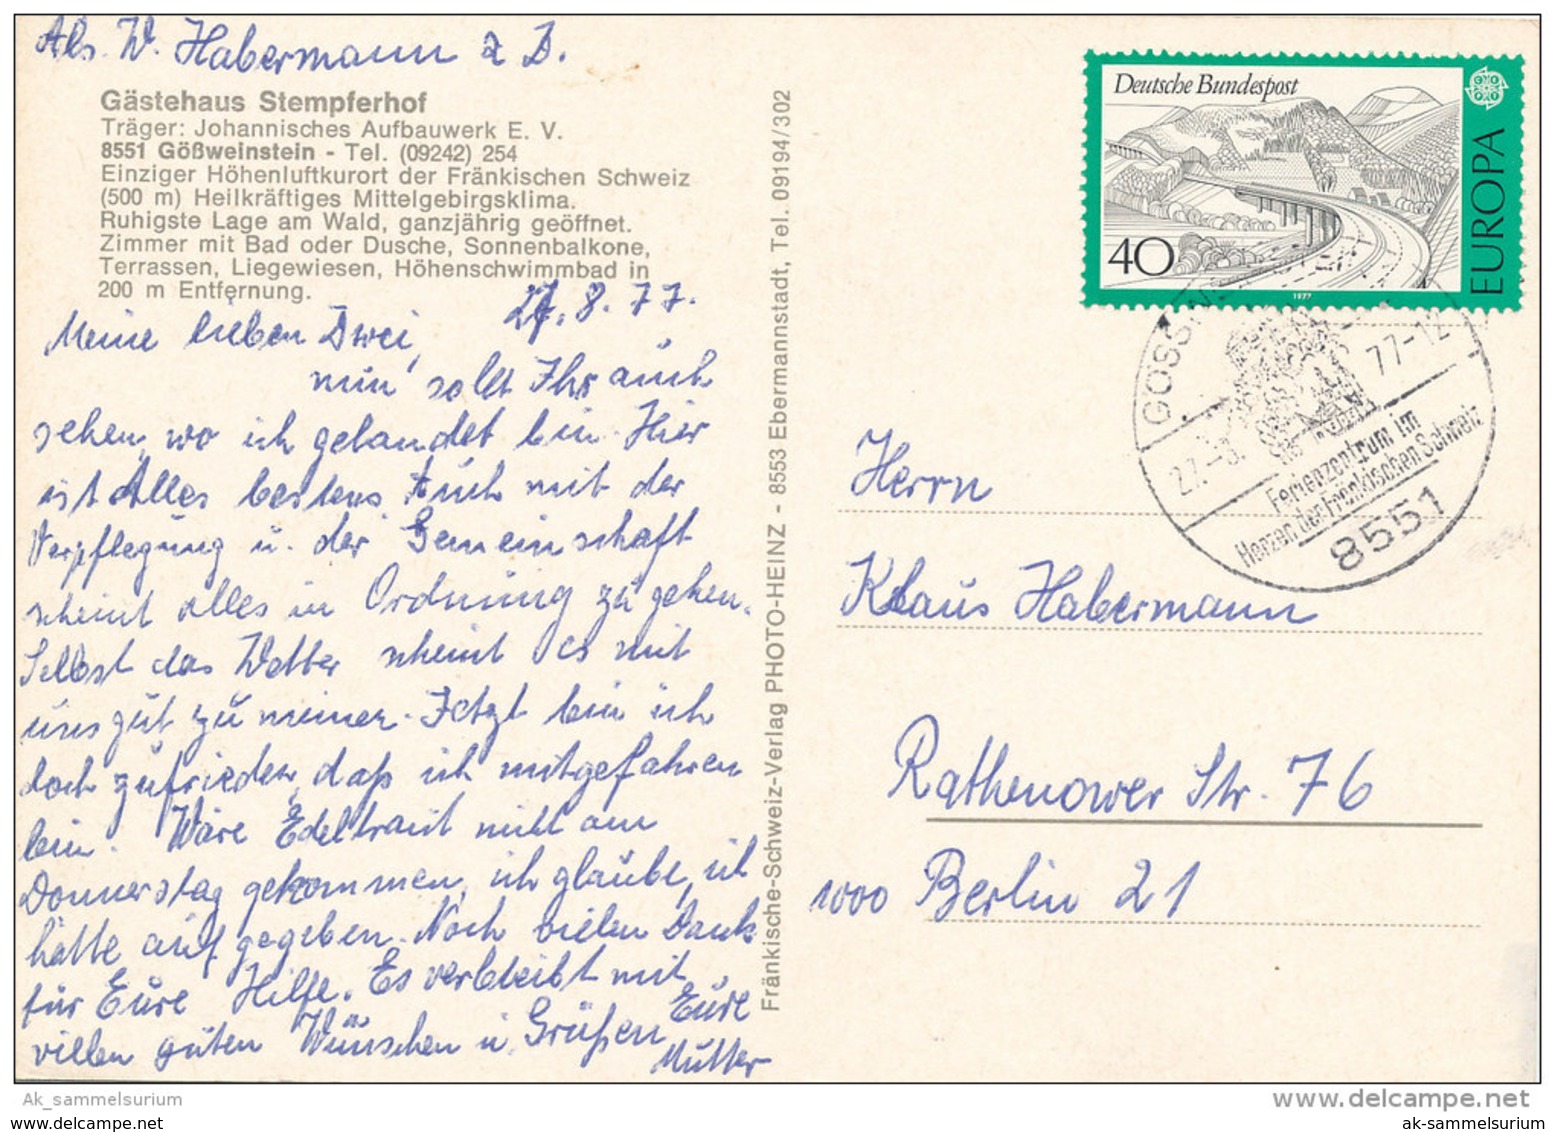 Abs. W. Habermann z. Z.
Gästehaus Stempferhof
Träger: Johannisches Aufbauwerk E. V.
8551 Gößweinstein - Tel. (09242) 254
Einziger Höhenluftkurort der Fränkischen Schweiz
(500 m) Heilkräftiges Mittelgebirgsklima.
Ruhigste Lage am Wald, ganzjährig geöffnet.
Zimmer mit Bad oder Dusche, Sonnenbalkone,
Terrassen, Liegewiesen, Höhenschwimmbad in
200 m Entfernung.
27. 8. 77.
Meine lieben Zwei,
nun sollt Ihr auch
sehen, wo ich gelandet bin. Hier
ist Alles bestens. Auch mit der
Verpflegung u. der Gemeinschaft
scheint alles in Ordnung zu gehen.
Selbst das Wetter scheint es mit
uns gut zu meinen. Jetzt bin ich
doch zufrieden, daß ich mitgefahren
bin. Wäre Edeltraut nicht am
Donnerstag gekommen, ich glaube, ich
hätte aufgegeben. Noch vielen Dank
für Eure Hilfe. Es verbleibt mit
vielen guten Wünschen u. Grüßen Eure
Mutter
Fränkische-Schweiz-Verlag PHOTO-HEINZ - 8553 Ebermannstadt, Tel. 09194/302
Deutsche Bundespost
40
EUROPA
1977
27.-8. 77-12
Ferienzentrum im
Herzen der Fränkischen Schweiz
8551
Herrn
Klaus Habermann
Rathenower Str. 76
1000 Berlin 21
Ak_sammelsurium
www.delcampe.net
ak-sammelsurium
ak-sammelsurium